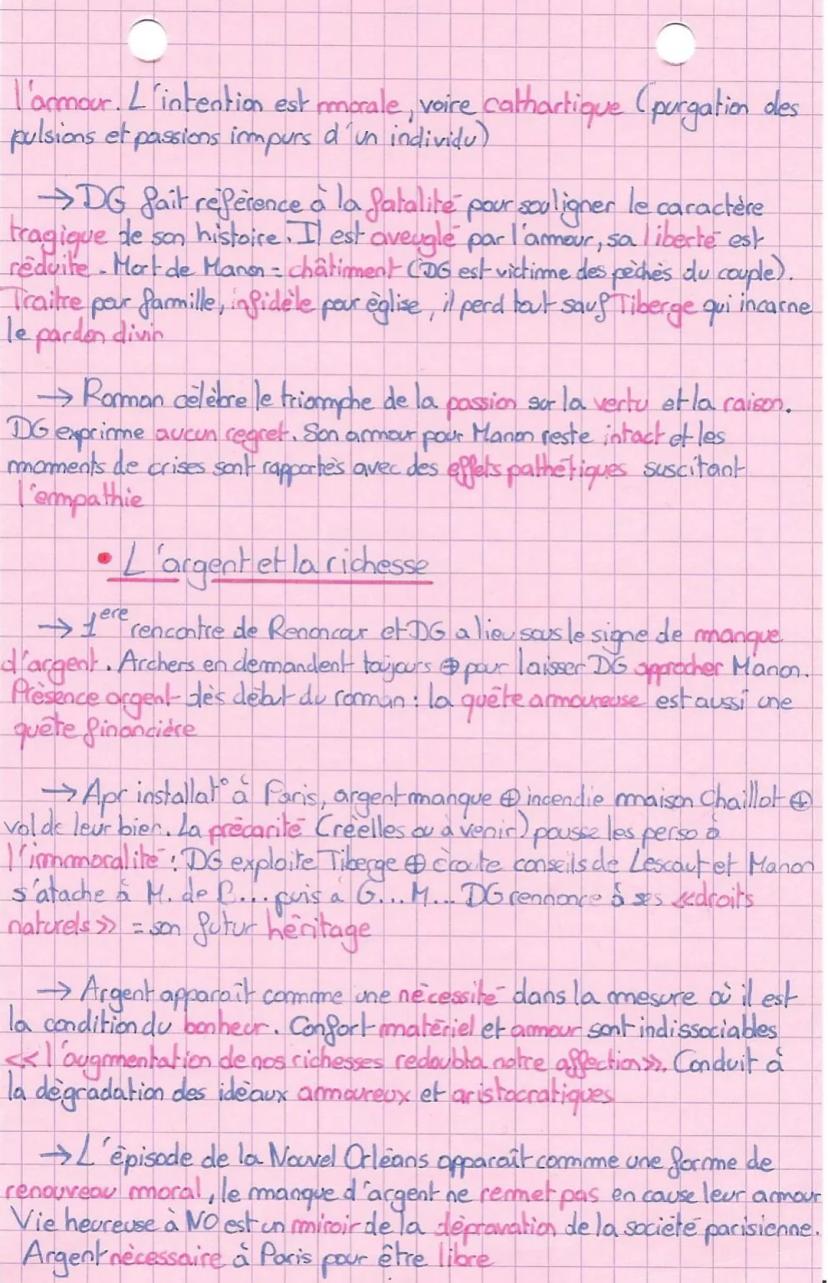 l'amour. L'intention est morale, voire cathartique (purgation des
pulsions et passions impurs d'un individu)
→ DG fait référence à la fatalité pour souligner le caractère
tragique de son histoire. Il est aveuglé par l'amour, sa liberté est
réduite. Mort de Manon = châtiment (DG est victime des péchés du couple).
Traitre pour famille, infidèle pour église, il perd tout sauf Tiberge qui incarne
le pardon divin
→ Roman célèbre le triomphe de la passion sur la vertu et la raison.
DG exprime aucun regret. Son amour pour Manon reste intact et les
moments de crises sont rapportés avec des effets pathétiques suscitant
l'empathie
• L'argent et la richesse
→ 1ere rencontre de Renoncour et DG a lieu sous le signe de manque
d'argent. Archers en demandent toujours ⊕ pour laisser DG approcher Manon.
Présence argent dès début du roman : la quête amoureuse est aussi une
quête financière
→ Apr installat° à Paris, argent manque ⊕ incendie maison Chaillot ⊕
vol de leur bien. La précarité (réelles ou à venir) pousse les perso à
l'immoralité : DG exploite Tiberge ⊕ écoute conseils de Lescaut et Manon
s'atache à M. de B... puis à G... M... DG rennonce à ses «droits
naturels» = son futur héritage
→ Argent apparait comme une nécessité dans la mesure où il est
la condition du bonheur. Confort matériel et amour sont indissociables
«l'augmentation de nos richesses redoubla notre affection». Conduit à
la dégradation des idéaux amoureux et aristocratiques
→ L'épisode de la Nouvel Orléans apparaît comme une forme de
renouveau moral, le manque d'argent ne remet pas en cause leur amour
Vie heureuse à NO est un miroir de la dépravation de la société parisienne.
Argent nécessaire à Paris pour être libre